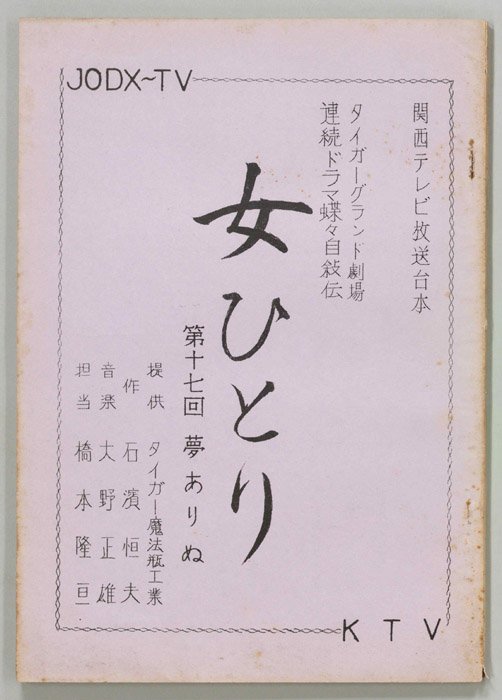 JODX~TV
関西テレビ放送台本
タイガーグランド劇場
連続ドラマ蝶々自敍伝
女ひとり
第十七回 夢ありぬ
提供 タイガー魔法瓶工業
作 石濱恒夫
音楽 大野正雄
担当 橋本隆亘
KTV